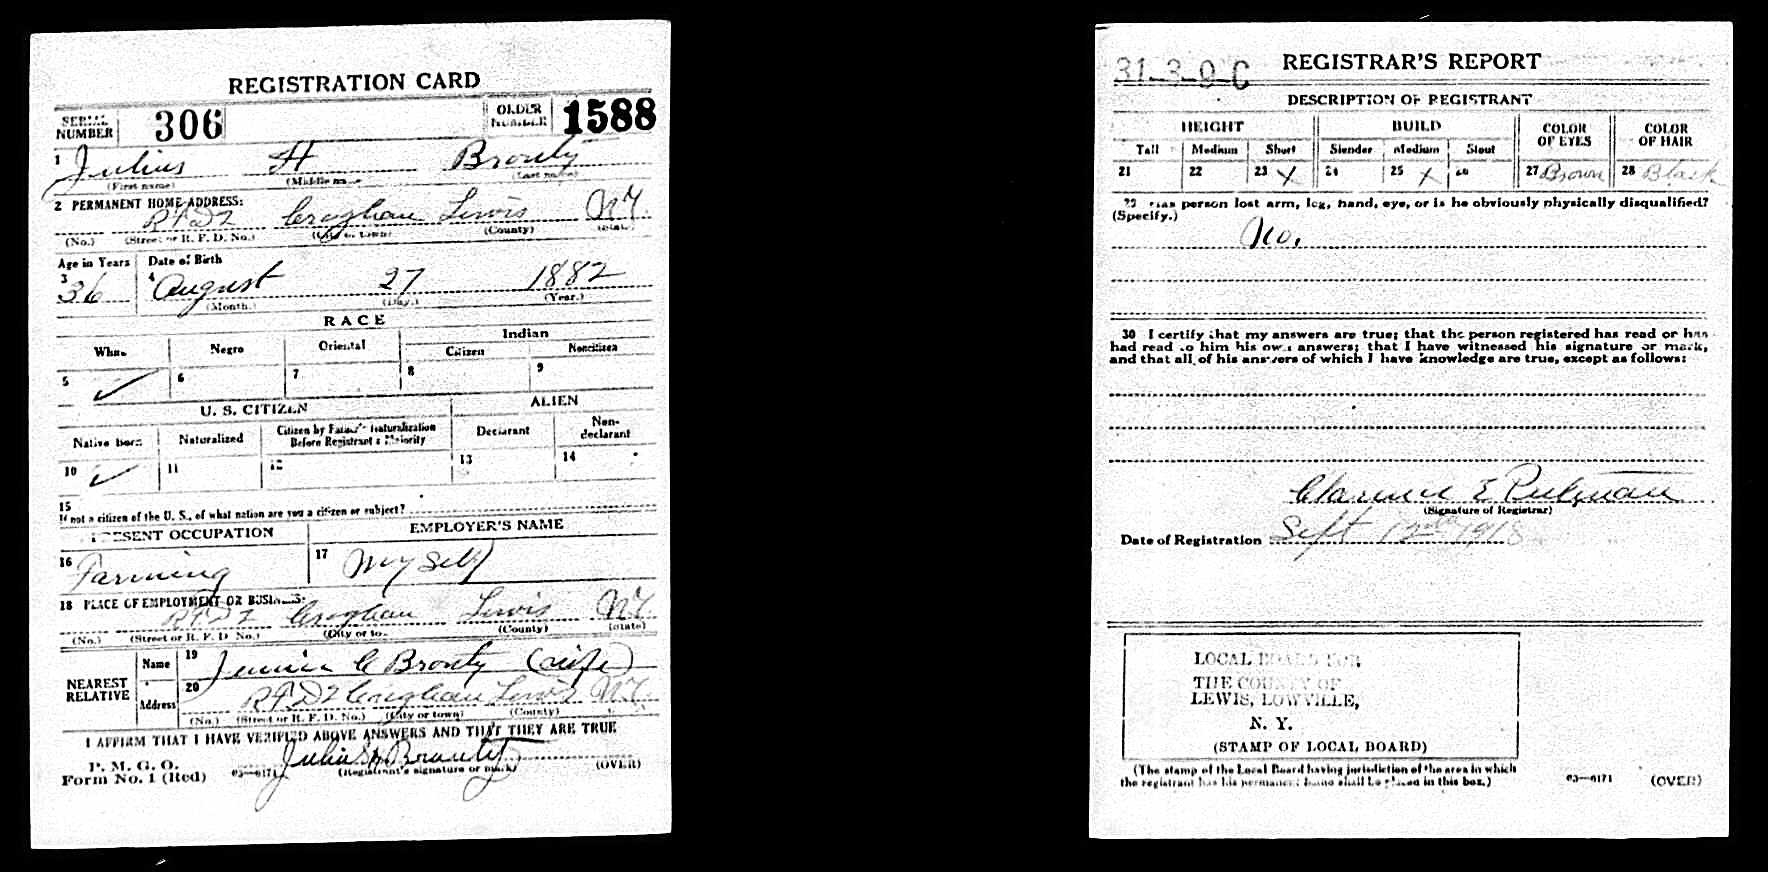 REGISTRATION CARD
SERIAL NUMBER 306 ORDER NUMBER 1588
1 Julius H Brouty
(First name) (Middle name) (Last name)
2 PERMANENT HOME ADDRESS:
RFD2 Croghan Lewis N.Y.
(No.) (Street or R. F. D. No.) (City or town) (County) (State)
Age in Years Date of Birth
3 36 4 August 27 1882
(Month.) (Day.) (Year.)
RACE
White Negro Oriental Indian
Citizen Noncitizen
5 ✓ 6 7 8 9
U. S. CITIZEN ALIEN
Native born Naturalized Citizen by Father's Naturalization Before Registrant's Majority Declarant Non-declarant
10 ✓ 11 12 13 14
15
If not a citizen of the U. S., of what nation are you a citizen or subject?
PRESENT OCCUPATION EMPLOYER'S NAME
16 Farming 17 My Self
18 PLACE OF EMPLOYMENT OR BUSINESS:
RFD2 Croghan Lewis N.Y.
(No.) (Street or R. F. D. No.) (City or town) (County) (State)
NEAREST RELATIVE Name 19 Jennie C Brouty (wife)
Address 20 RFD2 Croghan Lewis N.Y.
(No.) (Street or R. F. D. No.) (City or town) (County)
I AFFIRM THAT I HAVE VERIFIED ABOVE ANSWERS AND THAT THEY ARE TRUE
P. M. G. O.
Form No. 1 (Red) 03—6171 Julius H Brouty (OVER)
(Registrant's signature or mark)
31-3-9-C REGISTRAR'S REPORT
DESCRIPTION OF REGISTRANT
HEIGHT BUILD COLOR OF EYES COLOR OF HAIR
Tall Medium Short Slender Medium Stout
21 22 23 X 24 25 X 26 27 Brown 28 Black
29 Has person lost arm, leg, hand, eye, or is he obviously physically disqualified?
(Specify.)
No.
30 I certify that my answers are true; that the person registered has read or has
had read to him his own answers; that I have witnessed his signature or mark,
and that all of his answers of which I have knowledge are true, except as follows:
Clarence E Putnam
(Signature of Registrar)
Date of Registration Sept 12 1918
LOCAL BOARD FOR
THE COUNTY OF
LEWIS, LOWVILLE,
N. Y.
(STAMP OF LOCAL BOARD)
(The stamp of the Local Board having jurisdiction of the area in which
the registrant has his permanent home shall be placed in this box.)
03—6171 (OVER)